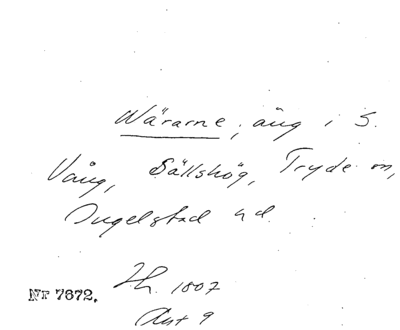 Wärarne, äng i S.
Vång, Sällshög, Tryde sn,
Ingelstad hd.
Nr 7672. Th. 1807
Akt 9